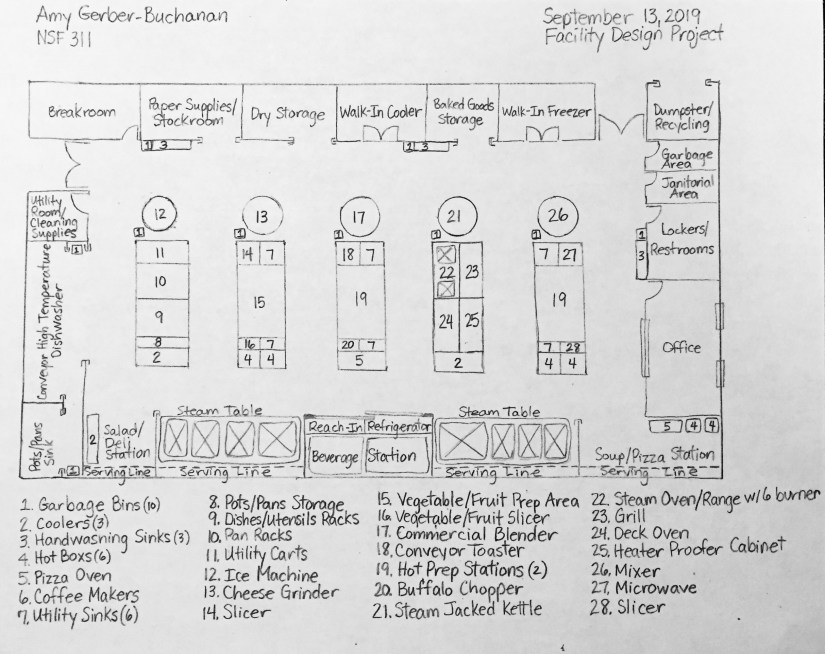 Amy Gerber-Buchanan
NSF 311
September 13, 2019
Facility Design Project
Breakroom
Paper Supplies/
Stockroom
Dry Storage
Walk-In Cooler
Baked Goods
Storage
Walk-In Freezer
Dumpster/
Recycling
1 3
1 3
Garbage
Area
Janitorial
Area
Utility
Room/
Cleaning
Supplies
1
12
13
17
21
26
Lockers/
Restrooms
1
3
1
1
1
1
1
11
10
9
8
2
14 7
15
16 7
4 4
18 7
19
20 7
5
22 23
24 25
2
7 27
19
7 28
4 4
Conveyor High Temperature
Dishwasher
Office
Pots/Pans
Sink
2
Salad/
Deli
Station
Steam Table
Reach-In Refrigerator
Beverage Station
Steam Table
5 4 4
Soup/Pizza Station
Serving Line
Serving Line
Serving Line
Serving Line
1. Garbage Bins (10)
2. Coolers (3)
3. Handwashing Sinks (3)
4. Hot Boxs (6)
5. Pizza Oven
6. Coffee Makers
7. Utility Sinks (6)
8. Pots/Pans Storage
9. Dishes/Utensils Racks
10. Pan Racks
11. Utility Carts
12. Ice Machine
13. Cheese Grinder
14. Slicer
15. Vegetable/Fruit Prep Area
16. Vegetable/Fruit Slicer
17. Commercial Blender
18. Conveyor Toaster
19. Hot Prep Stations (2)
20. Buffalo Chopper
21. Steam Jacked Kettle
22. Steam Oven/Range w/6 burner
23. Grill
24. Deck Oven
25. Heater Proofer Cabinet
26. Mixer
27. Microwave
28. Slicer